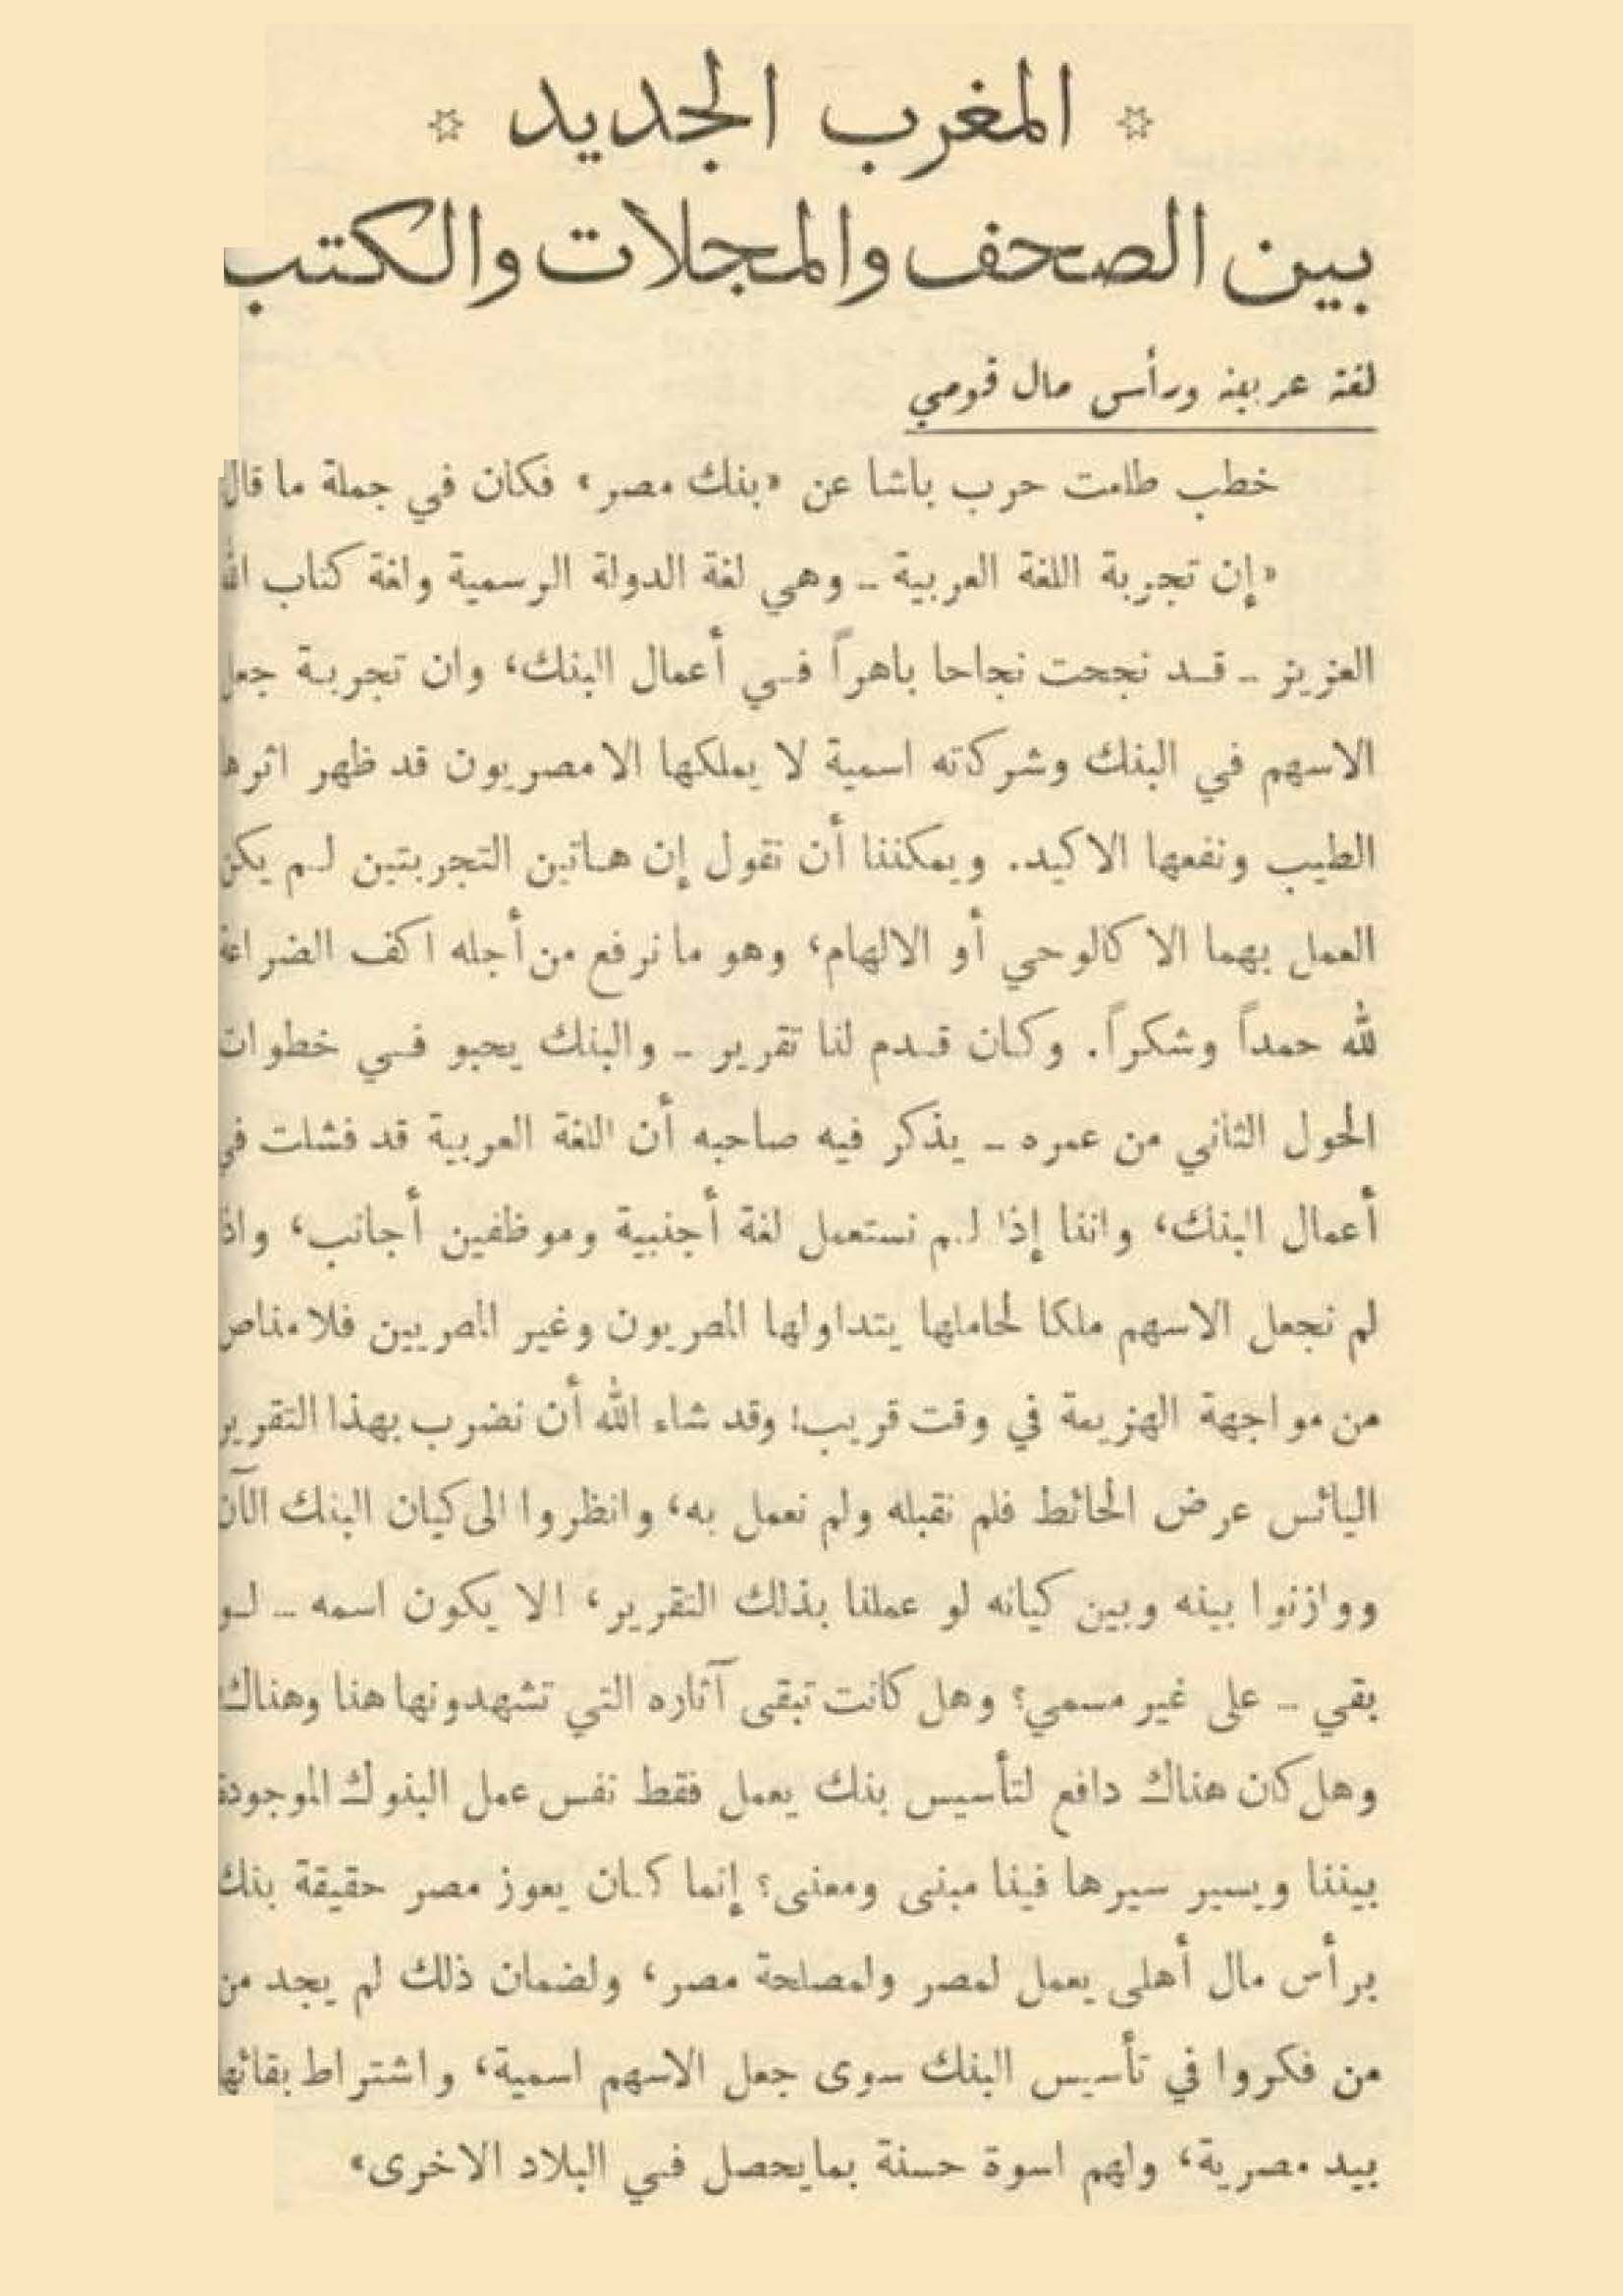 * المغرب الجديد *
بين الصحف والمجلات والكتب
لغة عربية ورأس مال قومي
خطب طلعت حرب باشا عن «بنك مصر» فكان في جملة ما قال
«إن تجربة اللغة العربية ـ وهي لغة الدولة الرسمية ولغة كتاب الله
العزيز ـ قد نجحت نجاحا باهراً في أعمال البنك، وان تجربة جعل
الاسهم في البنك وشركاته اسمية لا يملكها الا مصريون قد ظهر اثرها
الطيب ونفعها الاكيد. ويمكننا أن نقول إن هاتين التجربتين لم يكن
العمل بهما الا كالوحي أو الالهام، وهو ما نرفع من أجله اكف الضراعة
لله حمداً وشكراً. وكان قدم لنا تقرير ـ والبنك يحبو في خطوات
الحول الثاني من عمره ـ يذكر فيه صاحبه أن اللغة العربية قد فشلت في
أعمال البنك، واننا إذا لم نستعمل لغة أجنبية وموظفين أجانب، واذا
لم نجعل الاسهم ملكا لحاملها يتداولها المصريون وغير المصريين فلا مناص
من مواجهة الهزيمة في وقت قريب! وقد شاء الله أن نضرب بهذا التقرير
اليائس عرض الحائط فلم نقبله ولم نعمل به، وانظروا الى كيان البنك الآن
ووازنوا بينه وبين كيانه لو عملنا بذلك التقرير، الا يكون اسمه ـ لو
بقي ـ على غير مسمي؟ وهل كانت تبقى آثاره التي تشهدونها هنا وهناك
وهل كان هناك دافع لتأسيس بنك يعمل فقط نفس عمل البنوك الموجودة
بيننا ويسير سيرها فينا مبنى ومعنى؟ إنما كان يعوز مصر حقيقة بنك
برأس مال أهلى يعمل لمصر ولمصلحة مصر، ولضمان ذلك لم يجد من
من فكروا في تأسيس البنك سوى جعل الاسهم اسمية، واشتراط بقائها
بيد مصرية، ولهم اسوة حسنة بما يحصل في البلاد الاخرى»